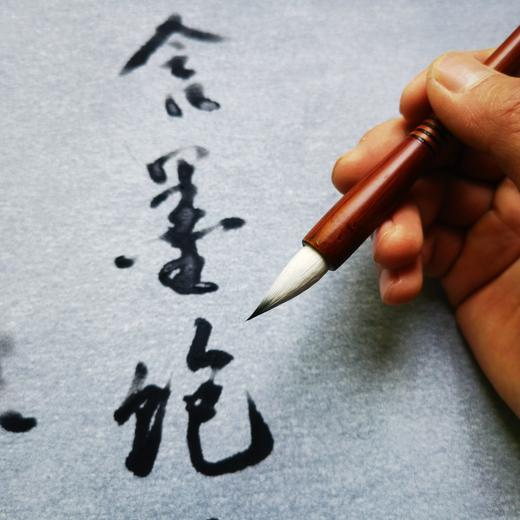 含墨饱